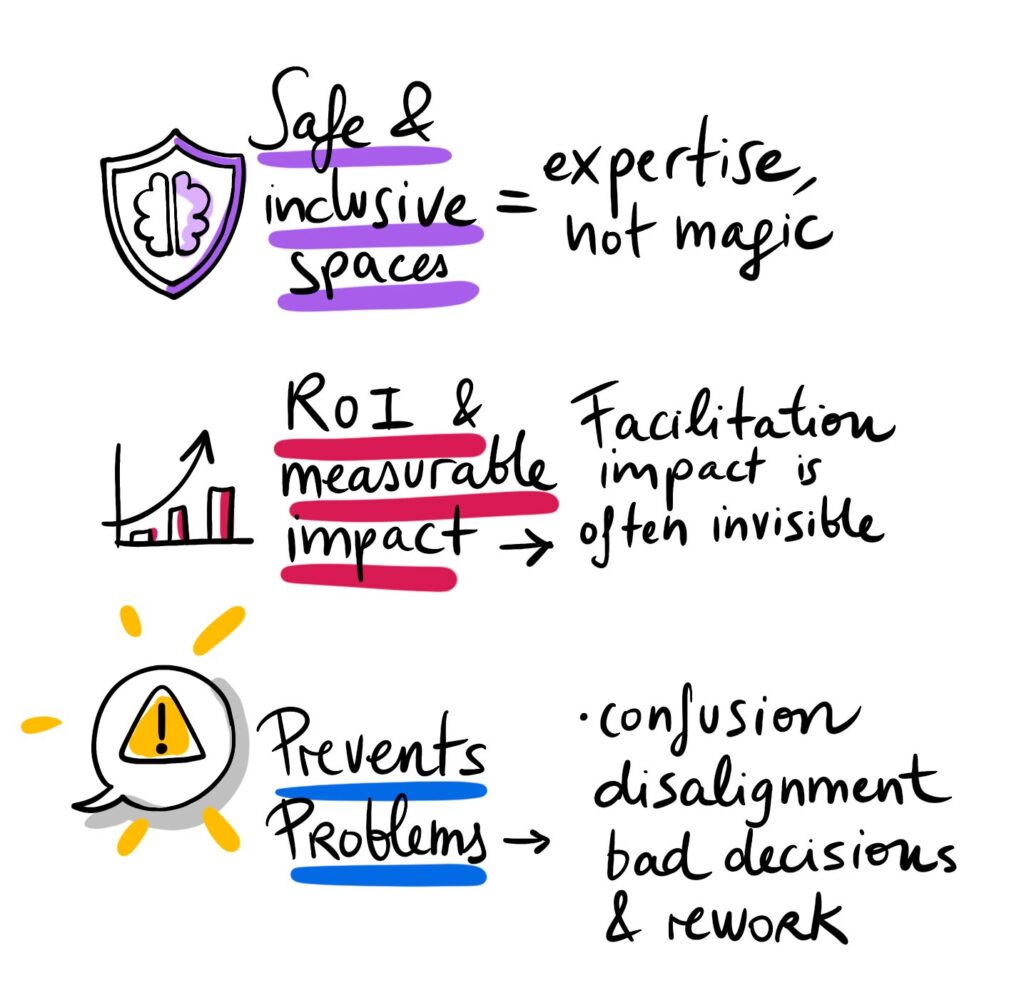 Safe &
inclusive
spaces
= expertise,
not magic
RoI &
measurable
impact →
Facilitation
impact is
often invisible
!
Prevents
Problems →
· confusion
disalignment
bad decisions
& rework